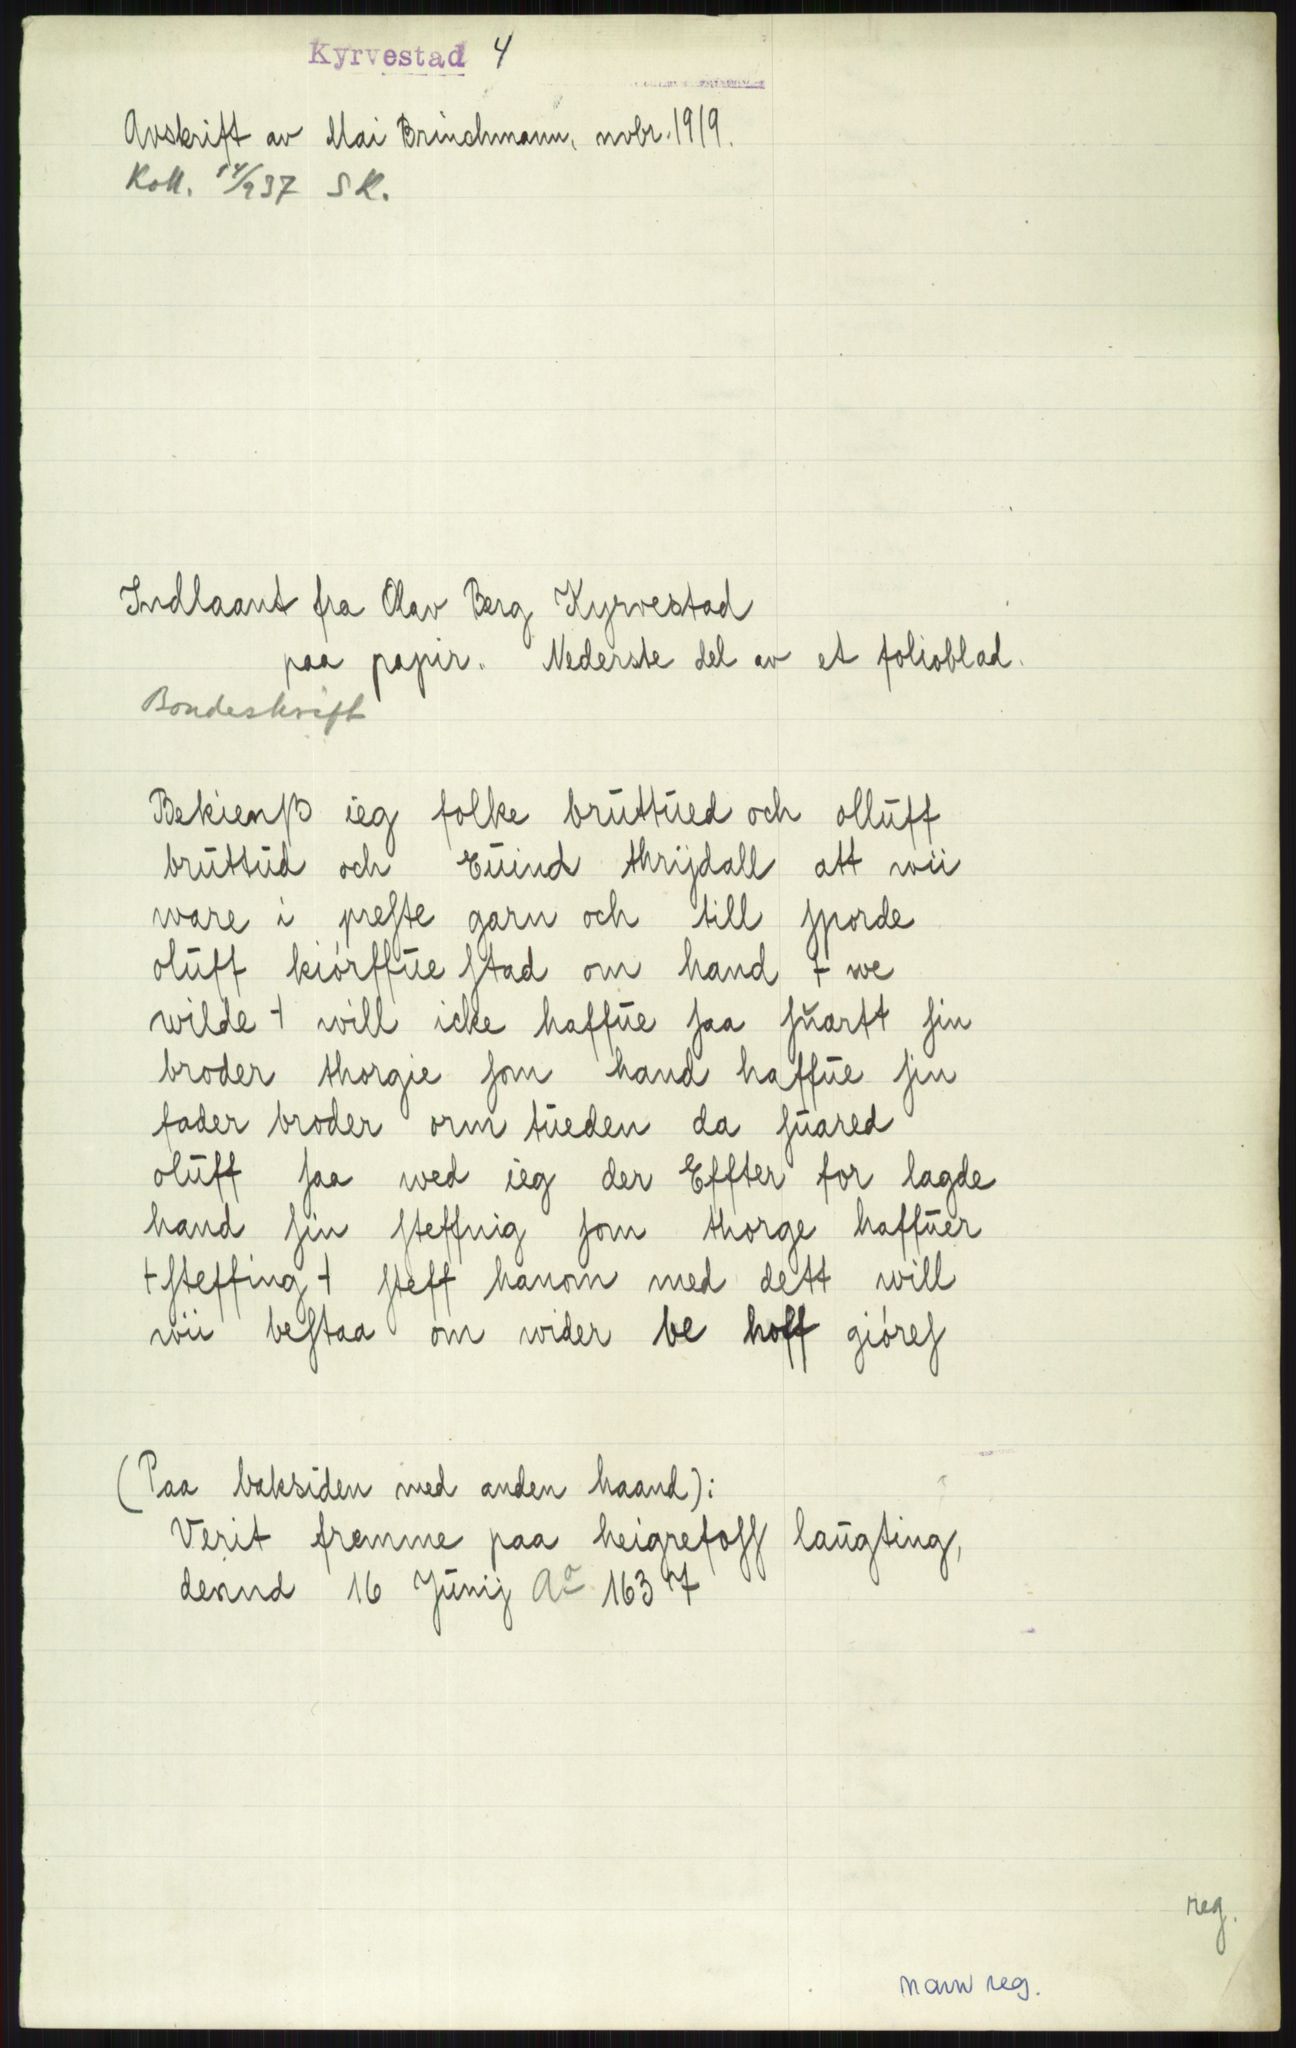 Kyrvestad 4
Avskrift av Mai Brinchmann, novbr. 1919.
Koll. 14/9 37 S K.
Indlaant fra Olav Berg Kyrvestad
paa papir. Nederste del av et folioblad.
Bondeskrift
Bekienß ieg folke bruttued och olluff
bruttud och Euind thrijdall att wii
ware i preste garn och till sporde
oluff kiórffue stad om hand + we
wilde + will icke haffue saa suartt sin
broder thorgie som hand haffue sin
fader broder orm tueden da suared
oluff saa wed ieg der Effter for lagde
hand sin steffnig som thorge haffuer
+ steffing + steff hanom med dett will
wii bestaa om wider be hoff gióres
(Paa baksiden med anden haand):
Verit fremme paa heigrefoss laugting,
dennd 16 Junij Ao 1637
reg.
navnreg.